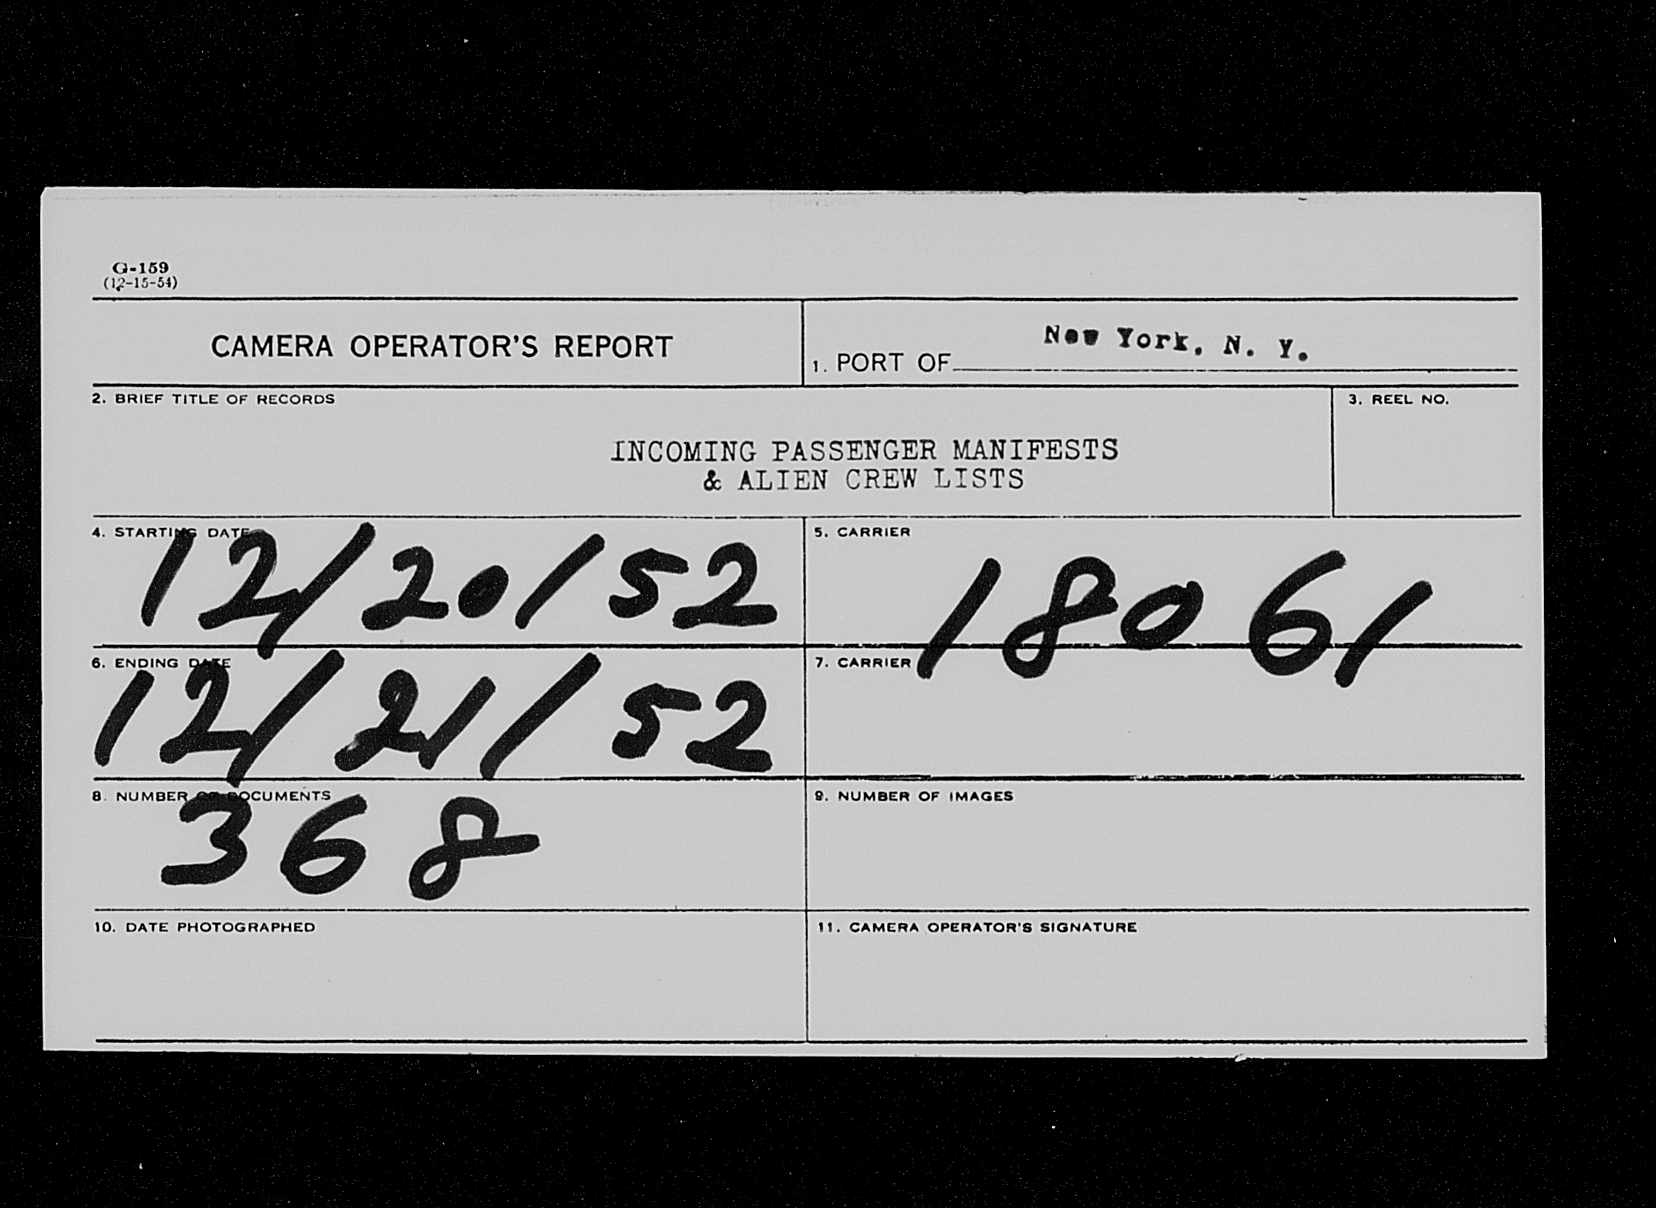 G-159
(12-15-54)
CAMERA OPERATOR'S REPORT
1. PORT OF New York, N. Y.
2. BRIEF TITLE OF RECORDS
INCOMING PASSENGER MANIFESTS
& ALIEN CREW LISTS
3. REEL NO.
4. STARTING DATE
12/20/52
5. CARRIER
18061
6. ENDING DATE
12/21/52
7. CARRIER
8. NUMBER OF DOCUMENTS
368
9. NUMBER OF IMAGES
10. DATE PHOTOGRAPHED
11. CAMERA OPERATOR'S SIGNATURE